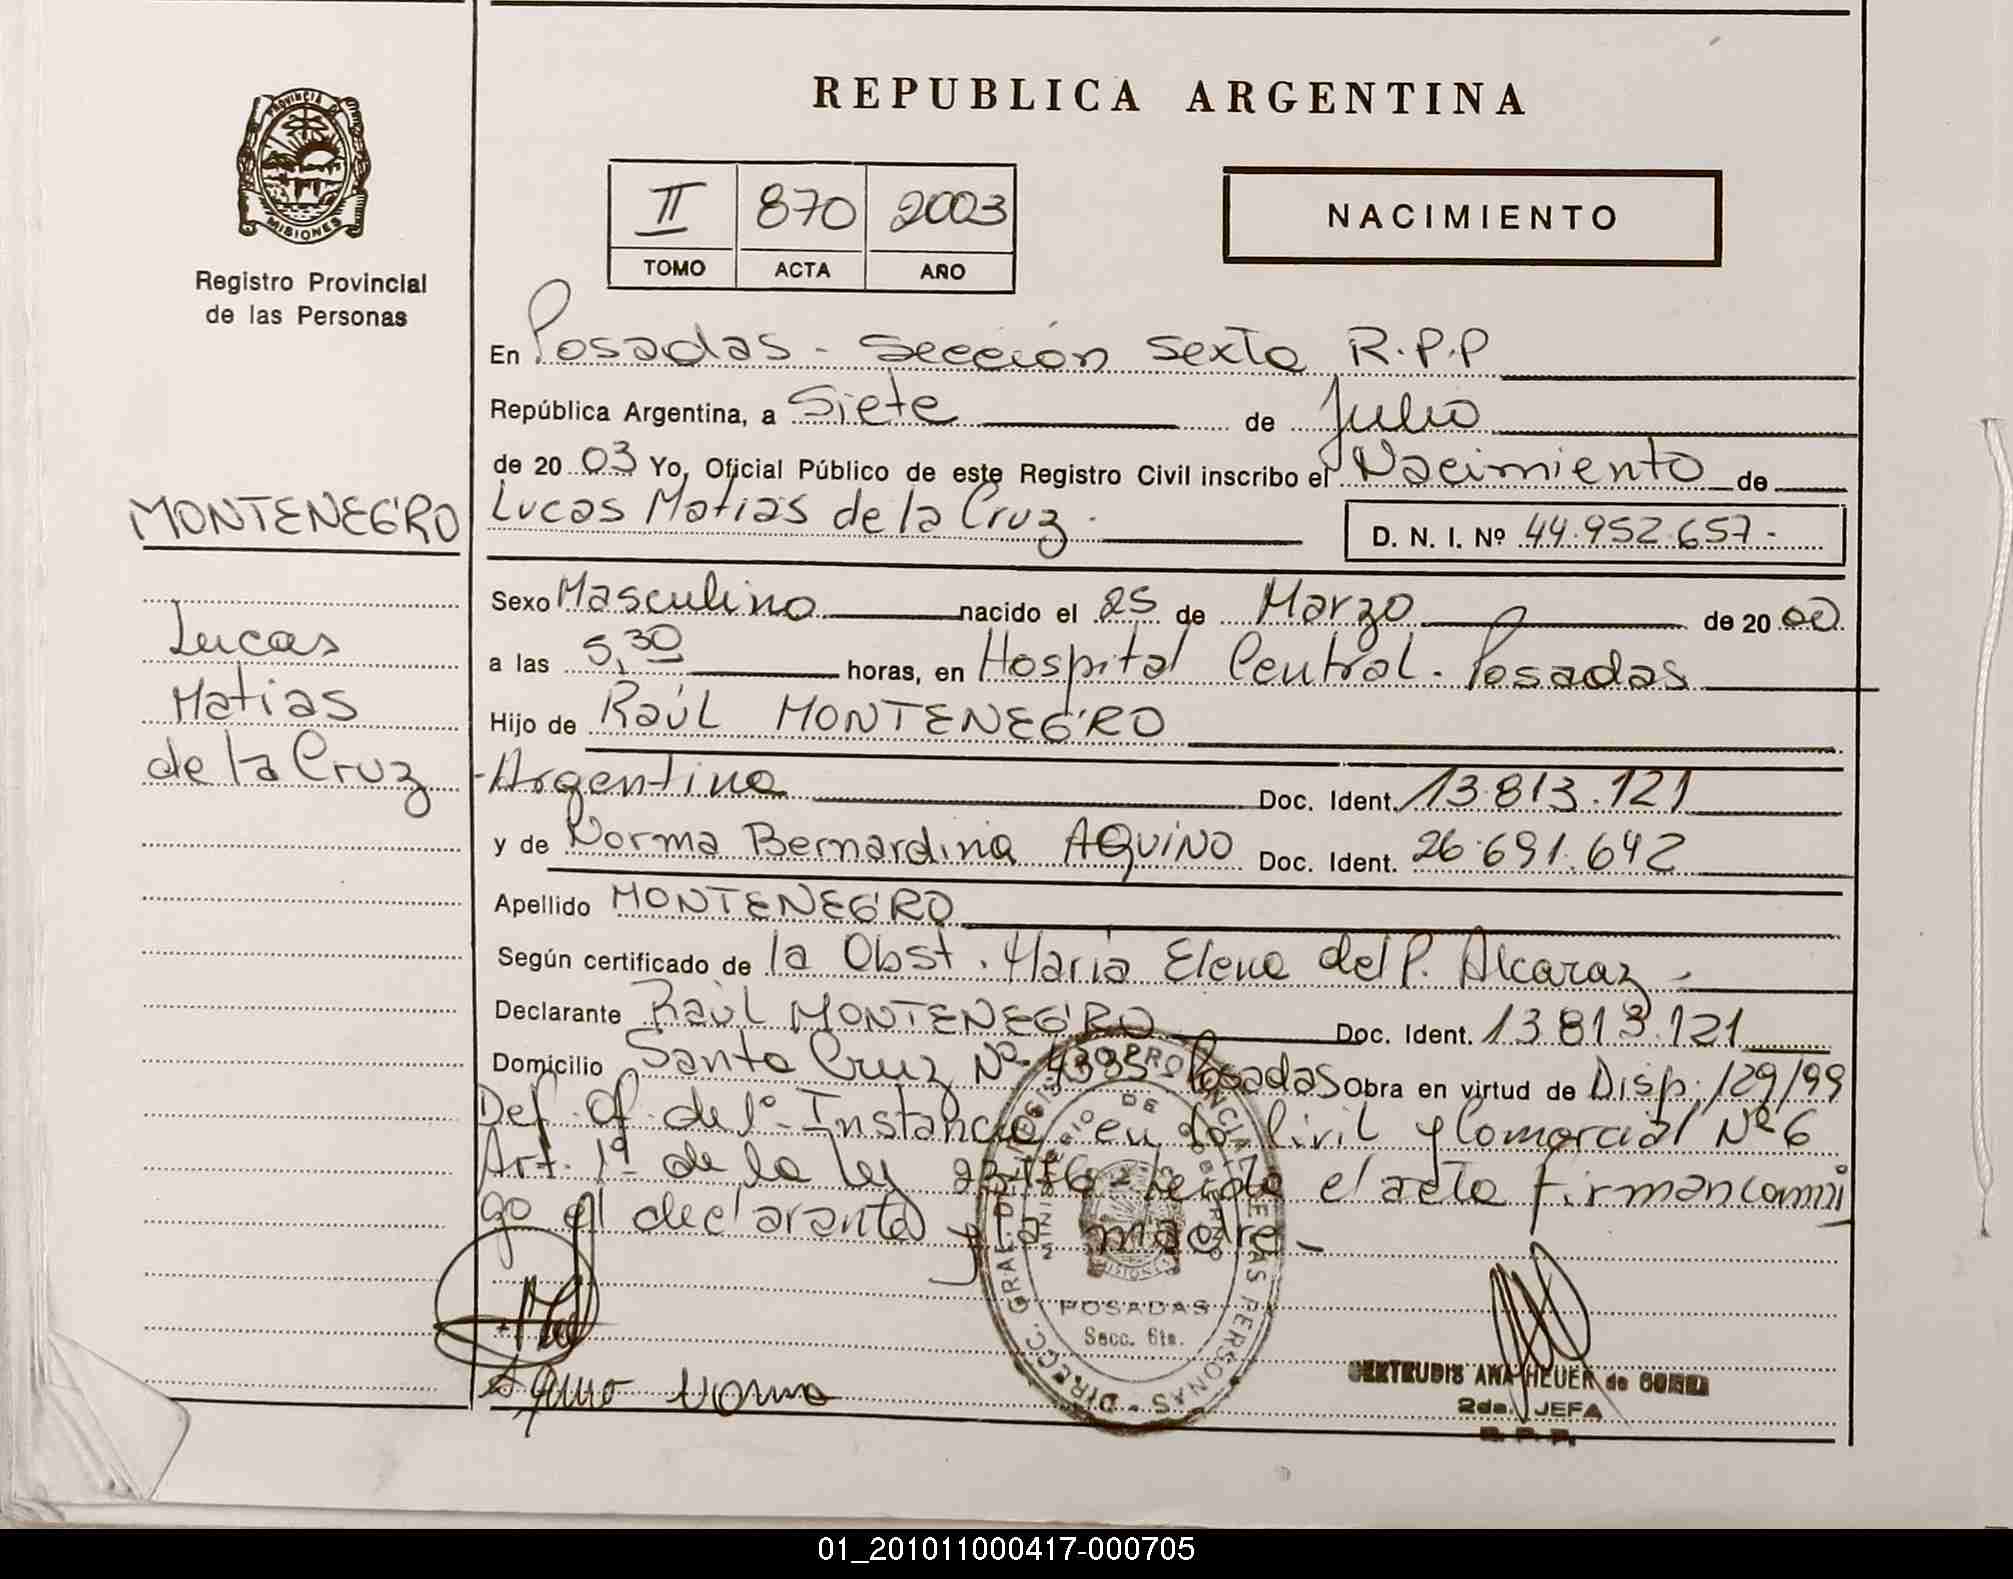 REPUBLICA ARGENTINA
PROVINCIA DE
MISIONES
Registro Provincial
de las Personas
II 870 2003
TOMO ACTA AÑO
NACIMIENTO
En Posadas - Sección Sexta R.P.P
República Argentina, a Siete de Julio
de 2003 Yo, Oficial Público de este Registro Civil inscribo el Nacimiento de
MONTENEGRO
Lucas Matias de la Cruz.
D. N. I. Nº 44.952.657.-
Lucas
Matias
de la Cruz
Sexo Masculino nacido el 25 de Marzo de 2000
a las 5,30 horas, en Hospital Central. Posadas
Hijo de Raúl MONTENEGRO
-Argentina Doc. Ident. 13.813.121
y de Norma Bernardina AQUINO Doc. Ident. 26.691.642
Apellido MONTENEGRO
Según certificado de la Obst. Maria Elena del P. Alcaraz -
Declarante Raúl MONTENEGRO Doc. Ident. 13.813.121
Domicilio Santa Cruz Nº Posadas Obra en virtud de Disp. 129/99
Def. Of. de 1º Instancia en lo Civil y Comercial Nº 6
Art. 1º de la Ley leida el acta firman conmi
go el declarante y la madre.-
Aquino Norma
DIRECC. GRAL. DEL REGISTRO PROVINCIAL DE LAS PERSONAS
MINISTERIO DE GOBIERNO
MISIONES
POSADAS
Secc. 6ta.
GERTRUDIS ANA HEUER de
2da. JEFA
R. P. P.
01_201011000417-000705